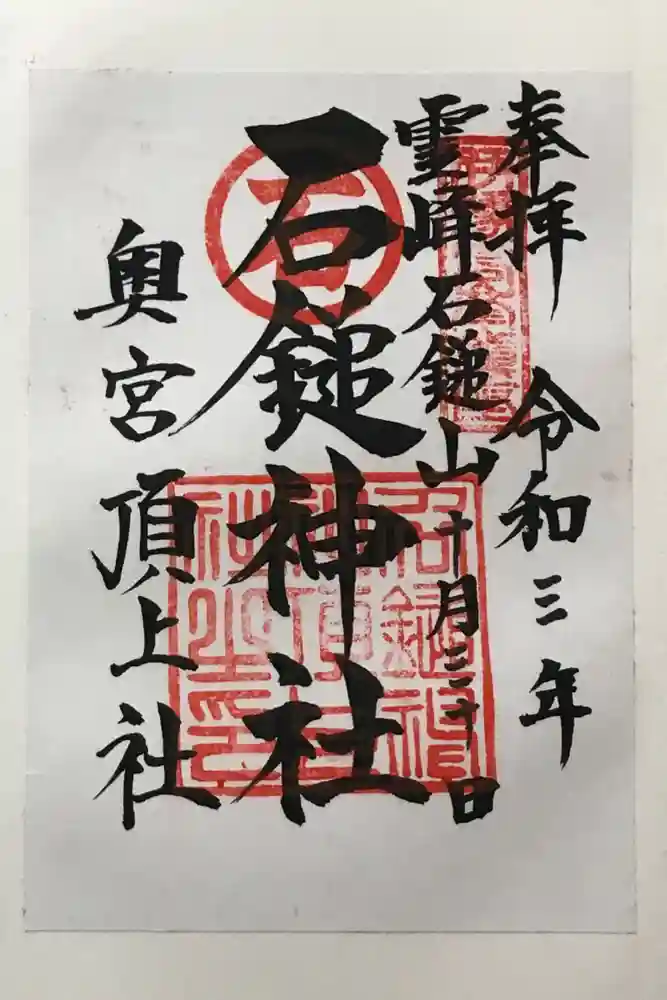 奉拝 令和三年
霊峰石鎚山 十月三十日
石鎚神社
奥宮頂上社
石